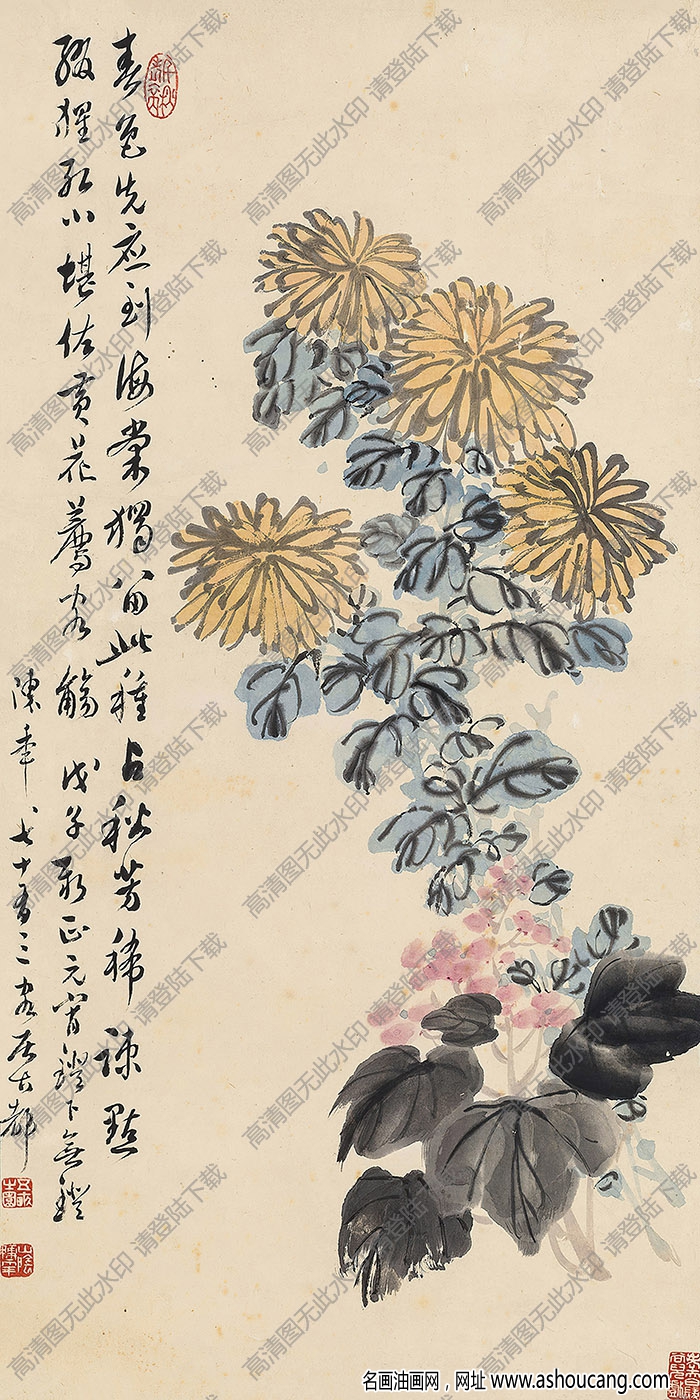 春色先应到海棠獨留此種占秋芳稀疎點
綴猩紅小堪佐黄花薦客觴 戊子新正元宵鐙下無鐙
陳年七十有三客居古都
高清图无此水印 请登陆下载
名画油画网，网址 www.ashoucang.com